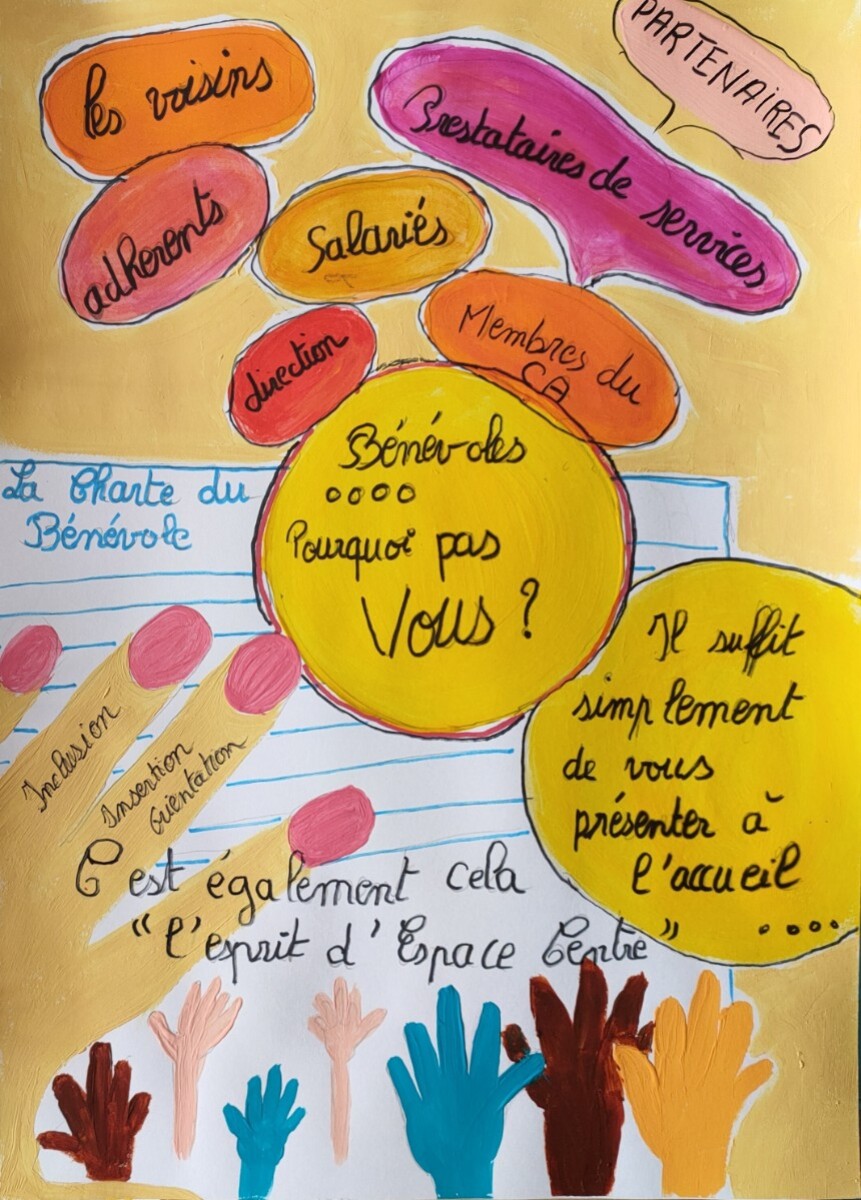 PARTENAIRES
les voisins
Prestataires de services
adherents
Salariés
direction
Membres du
CA
Bénévoles
....
Pourquoi pas
Vous ?
La Charte du
Bénévole
Il suffit
simplement
de vous
présenter à
l'accueil
....
Inclusion
Insertion
Orientation
C'est également cela
"l'esprit d'Espace Centre"